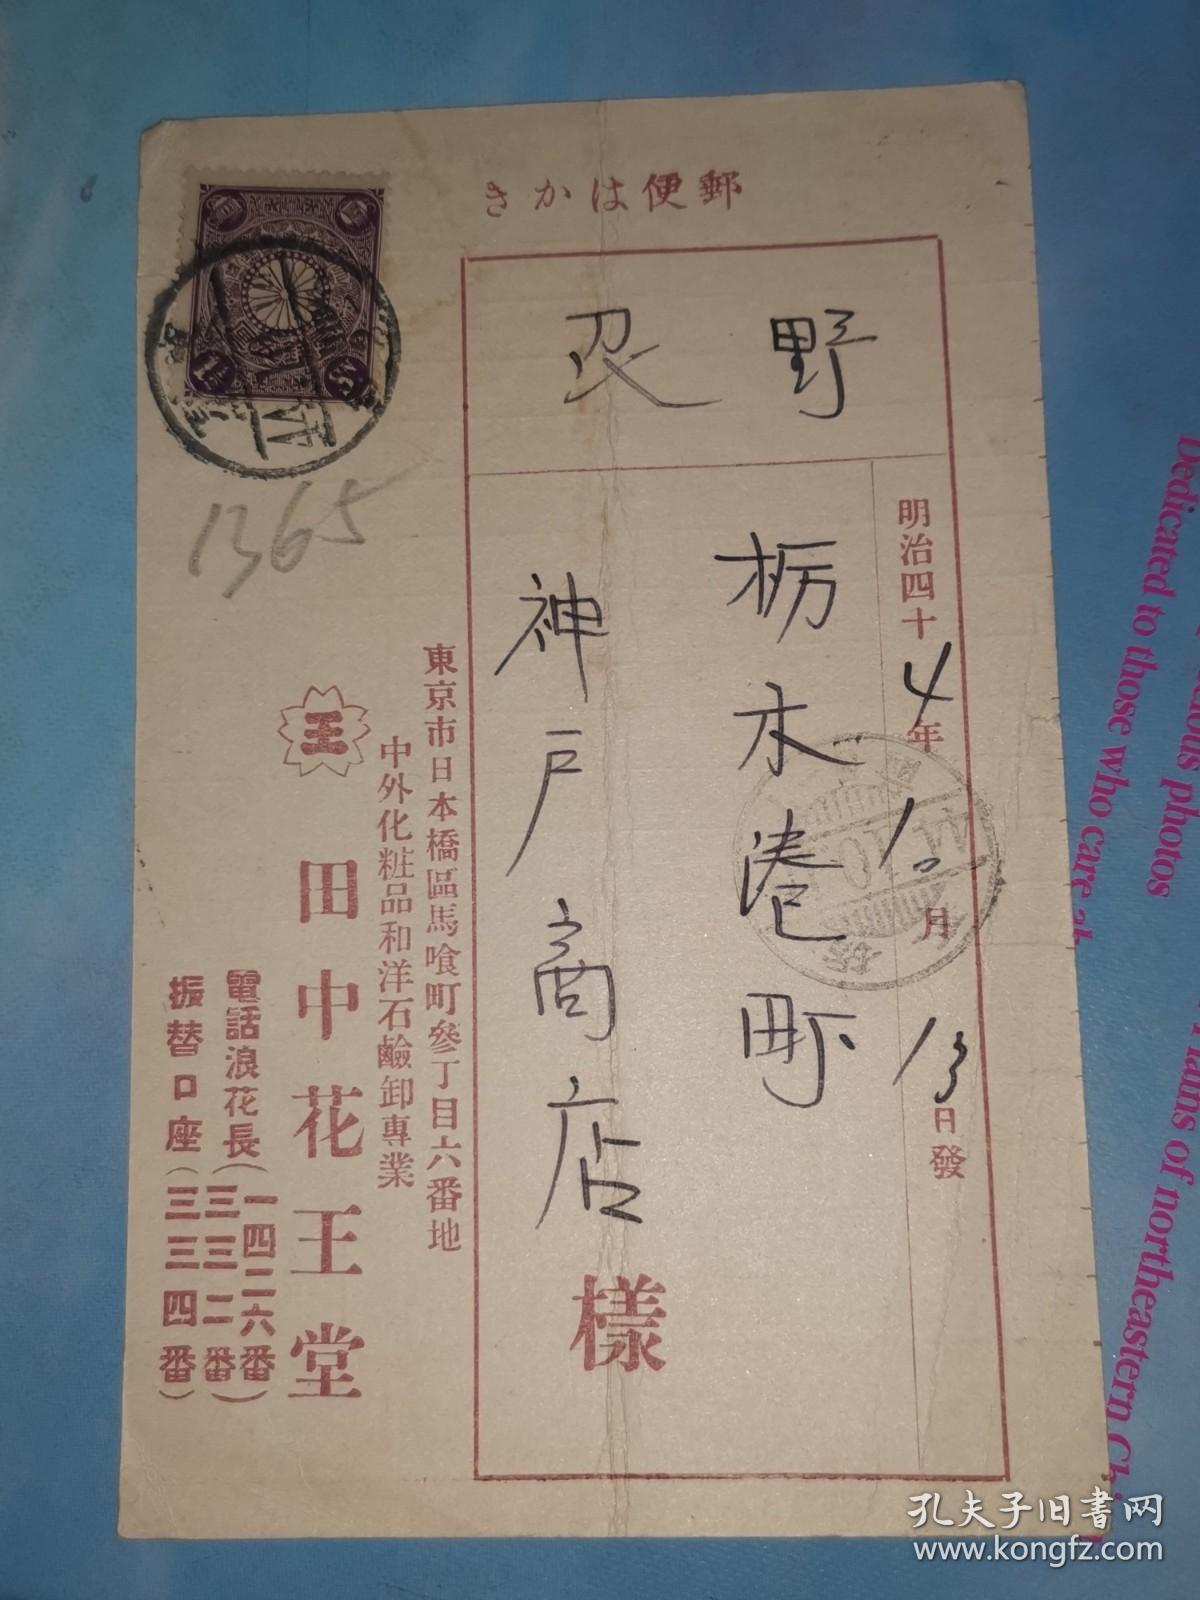 郵便はかき
野
明治四十4年10月13日發
栃木港町
神戸商店
樣
東京市日本橋區馬喰町參丁目六番地
中外化粧品和洋石鹼卸專業
王
田中花王堂
電話浪花長(一四二六番
三三二番)
振替口座(三三四番)
1365
44.10
Dedicated to those who care
photos
Plains of northeastern Ch
孔夫子旧书网
www.kongfz.com